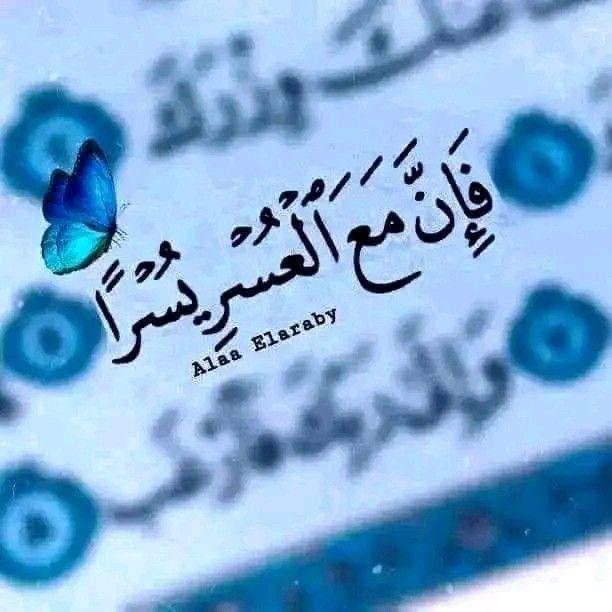 فَإِنَّ مَعَ ٱلْعُسْرِ يُسْرًا
Alaa Elaraby